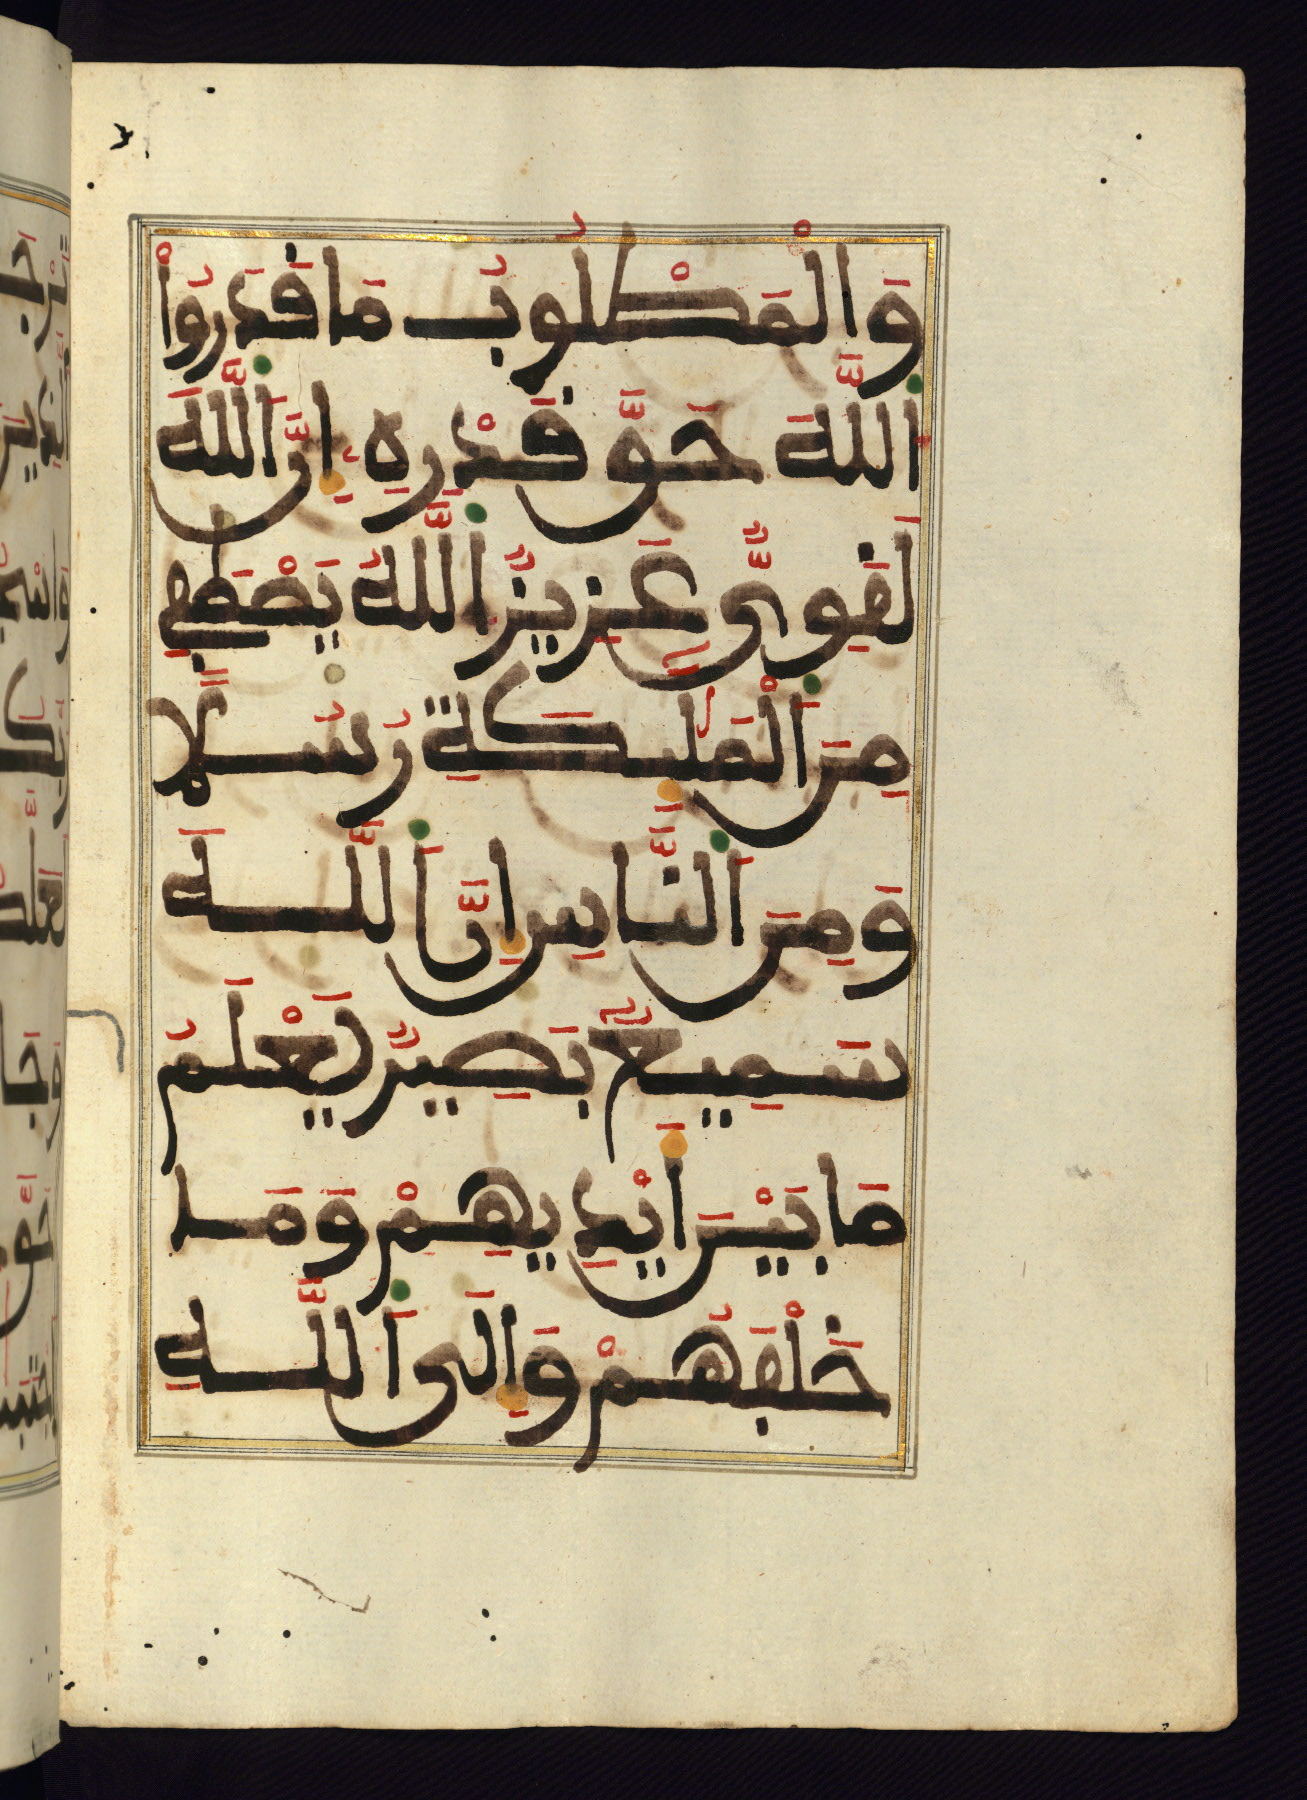 وَالْمَطْلُوبُ مَا قَدَرُواْ
اَ۬للَّهَ حَقَّ قَدْرِهِۦٓ إِنَّ اَ۬للَّهَ
لَقَوِيٌّ عَزِيزٌ اِ۬للَّهُ يَصْطَفِے
مِنَ اَ۬لْمَلَٰٓئِكَةِ رُسُلاٗ
وَمِنَ اَ۬لنَّاسِ إِنَّ اَ۬للَّهَ
سَمِيعُۢ بَصِيرٞ يَعْلَمُ
مَا بَيْنَ أَيْدِيهِمْ وَمَا
خَلْفَهُمْ وَإِلَي اَ۬للَّهِ